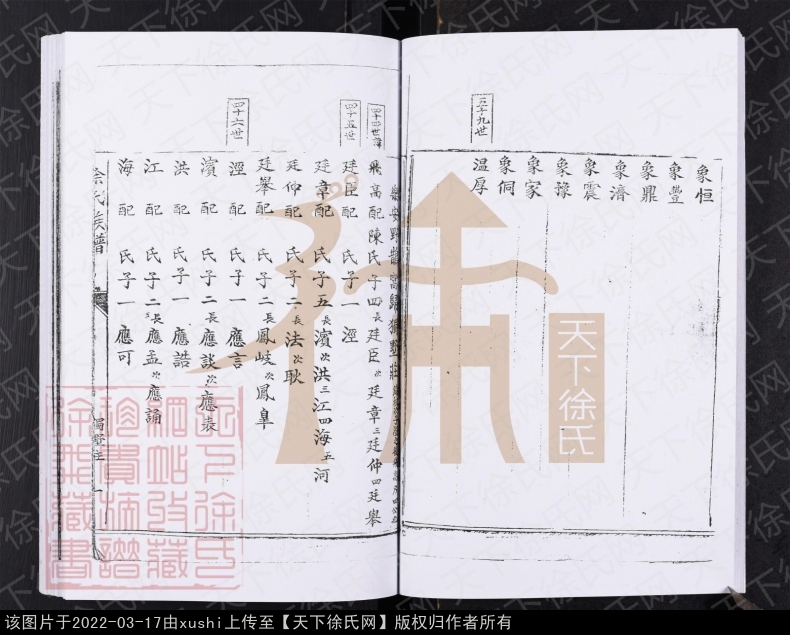 五十九世
象恒
象豐
象鼎
象濟
象震
象豫
象家
象侗
温厚
四十四世
飛高配陳氏子四長廷臣次廷章三廷仲四廷舉
四十五世
廷臣配 氏子一 涇
廷章配 氏子五長濱次洪三江四海五河
廷仲配 氏子二長法次耿
廷舉配 氏子二長鳳岐次鳳臯
四十六世
涇 配 氏子一 應言
濱 配 氏子二長應談次應表
洪 配 氏子一 應誥
江 配 氏子二長應孟次應誦
海 配 氏子一 應可
徐氏族譜
天下徐氏
天下徐氏网
该图片于2022-03-17由xushi上传至【天下徐氏网】版权归作者所有